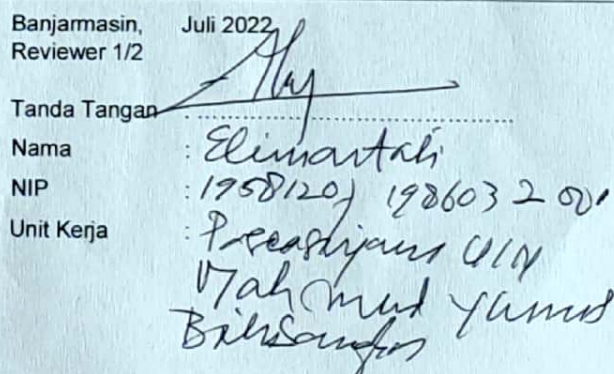 Banjarmasin, Juli 2022
Reviewer 1/2
Tanda Tangan :
Nama : Elimartati
NIP : 198603 2 001
Unit Kerja : Pascasarjana UIN
Mahmud Yunus
Batusangkar